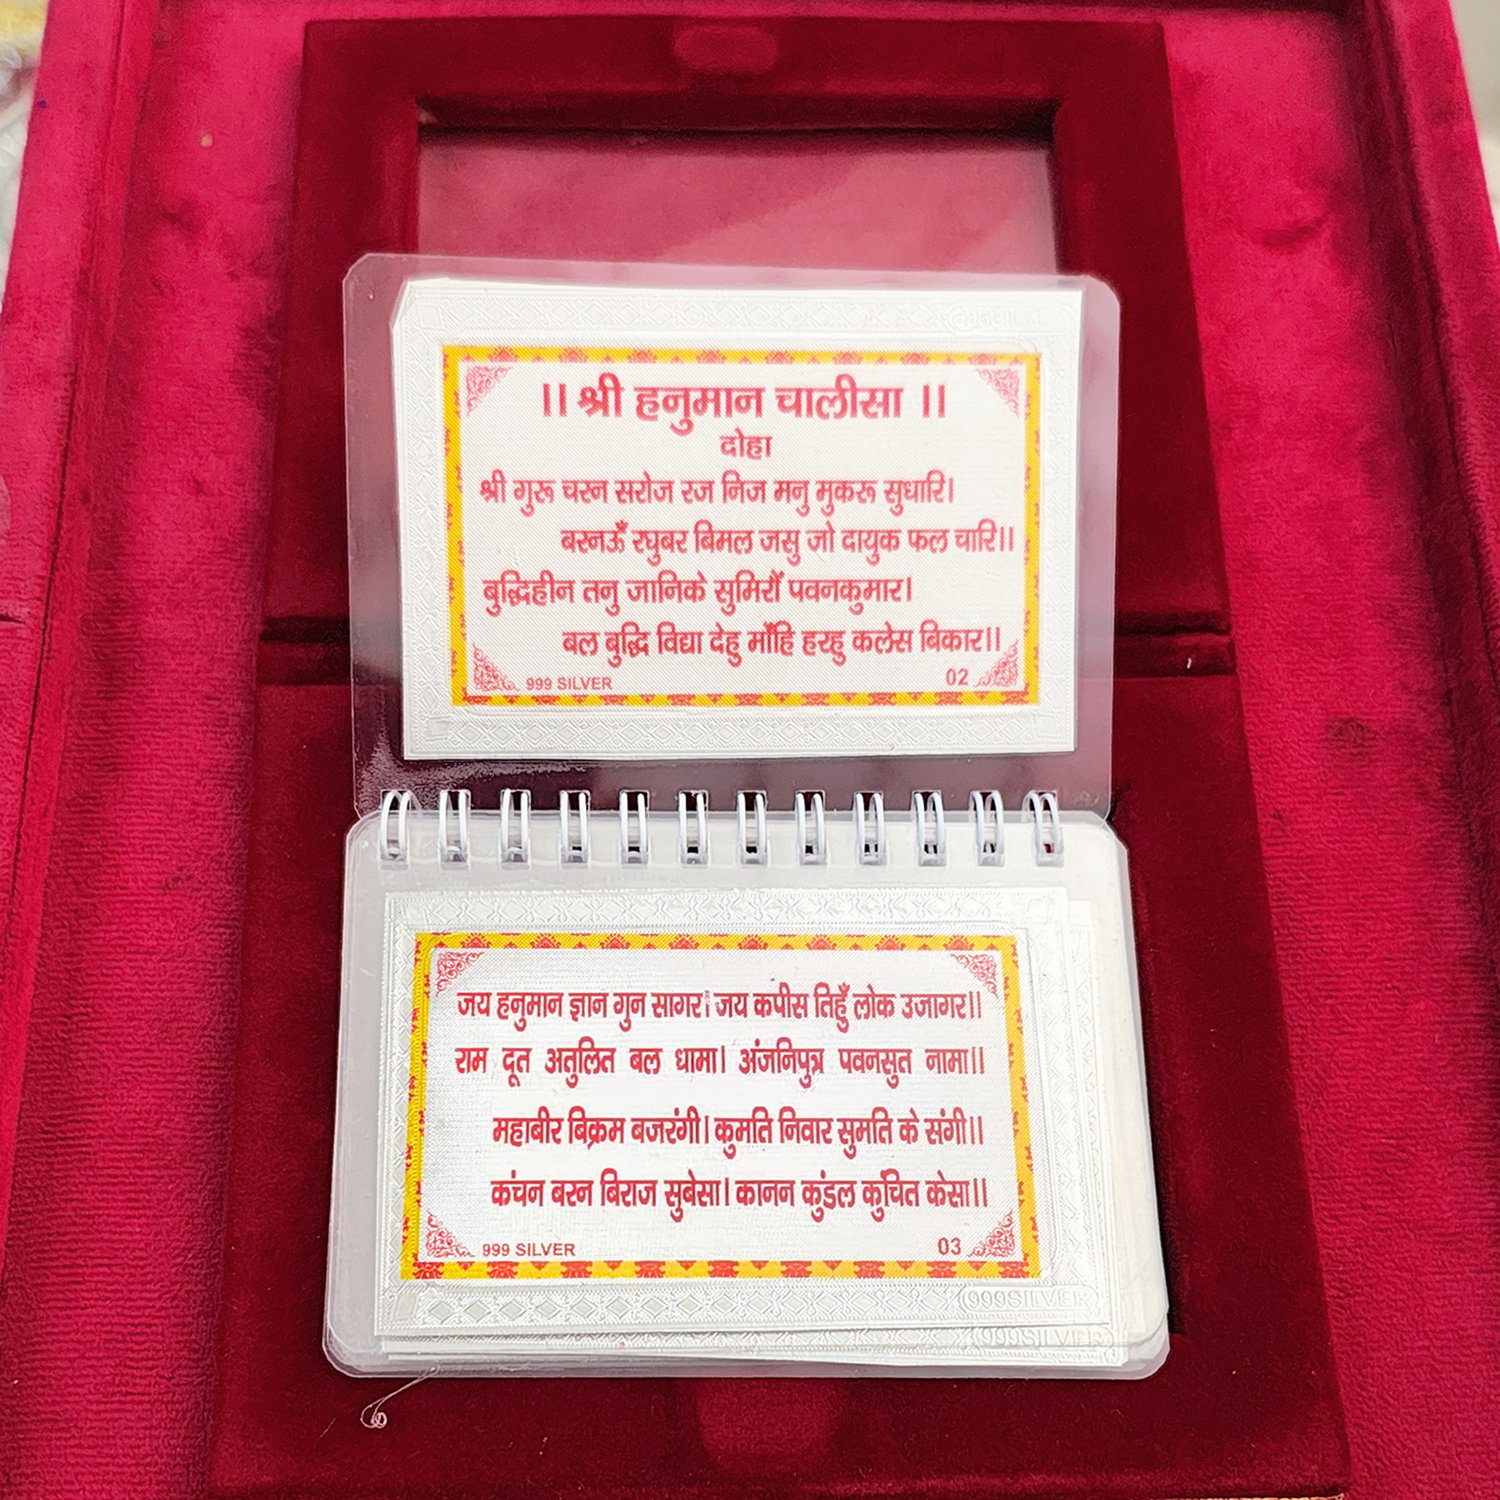 ।। श्री हनुमान चालीसा ।।
दोहा
श्री गुरू चरन सरोज रज निज मनु मुकरू सुधारि।
बरनऊँ रघुबर बिमल जसु जो दायुक फल चारि।।
बुद्धिहीन तनु जानिके सुमिरौं पवनकुमार।
बल बुद्धि विद्या देहु मोंहि हरहु कलेस बिकार।।
999 SILVER 02
जय हनुमान ज्ञान गुन सागर। जय कपीस तिहुँ लोक उजागर।।
राम दूत अतुलित बल धामा। अंजनिपुत्र पवनसुत नामा।।
महाबीर बिक्रम बजरंगी। कुमति निवार सुमति के संगी।।
कंचन बरन बिराज सुबेसा। कानन कुंडल कुंचित केसा।।
999 SILVER 03
999SILVER
999SILVER